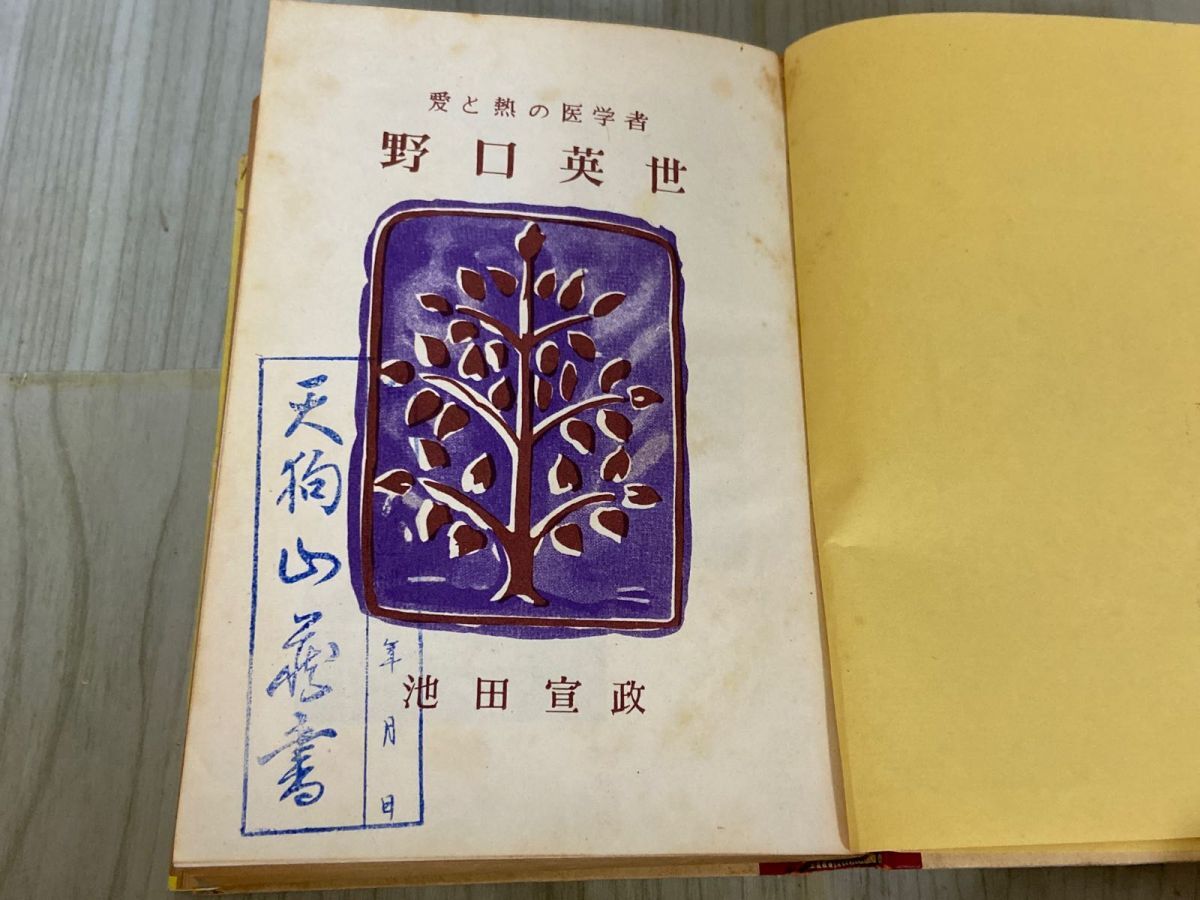 愛と熱の医学者
野口英世
天狗山蔵書
年月日
池田宣政